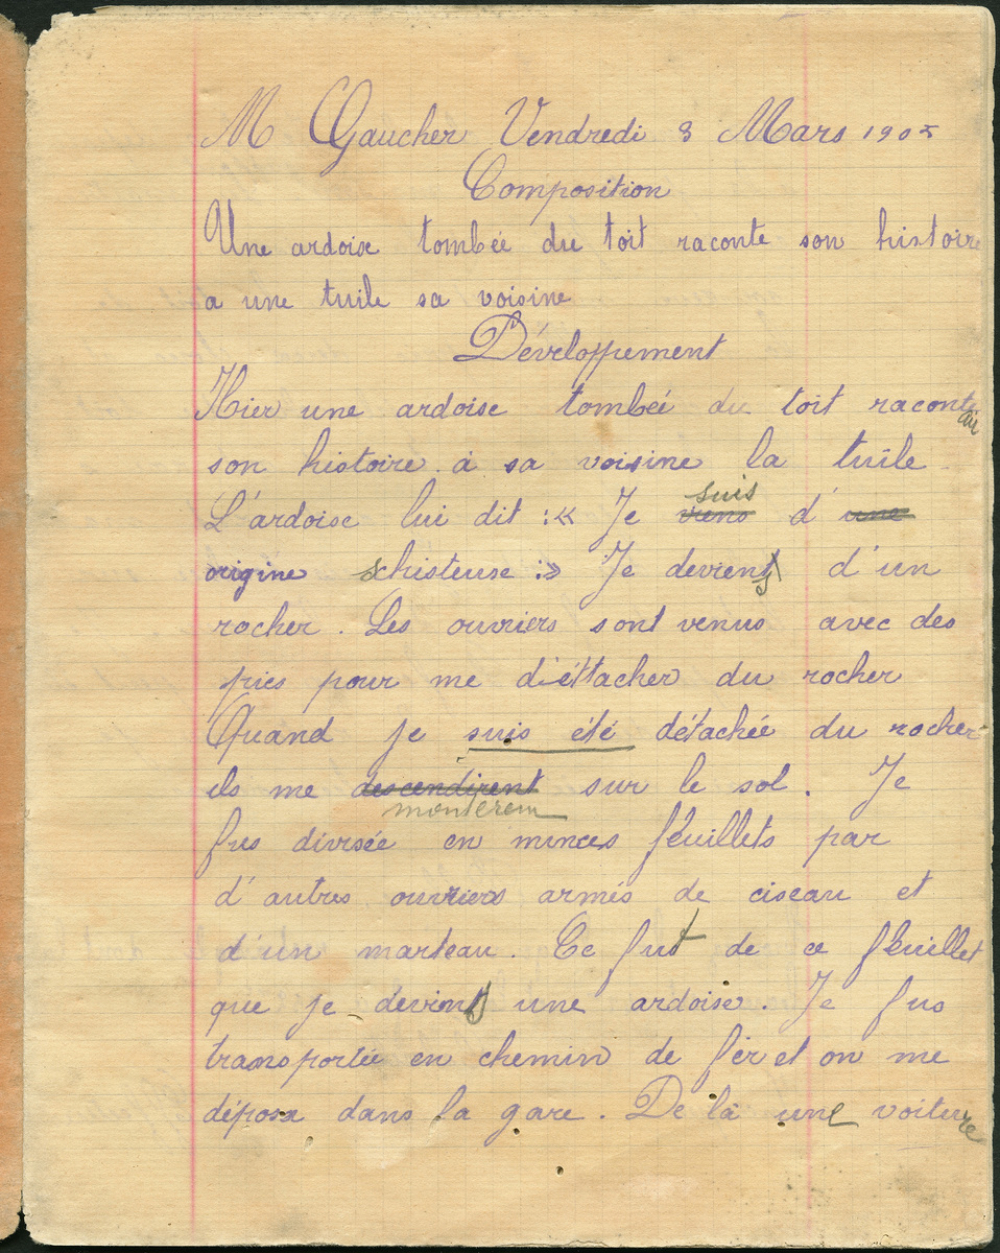 M Gaucher Vendredi 3 Mars 1905
Composition
Une ardoise tombée du toit raconte son histoire
a une tuile sa voisine
Développement
Hier une ardoise tombée du toit racontait
son histoire à sa voisine la tuile
L'ardoise lui dit :« Je viens suis d' une
origine schisteuse :» Je devients d'un
rocher. Les ouvriers sont venus avec des
pics pour me d'éttacher du rocher
Quand je suis été détachée du rocher
ils me descendirent sur le sol. Je
montèrent
fus divisée en minces feuillets par
d'autres ouvriers armés de ciseau et
d'un marteau. Ce fut de ce feuillet
que je devins une ardoise. Je fus
transportée en chemin de fer et on me
déposa dans la gare. De là une voiture